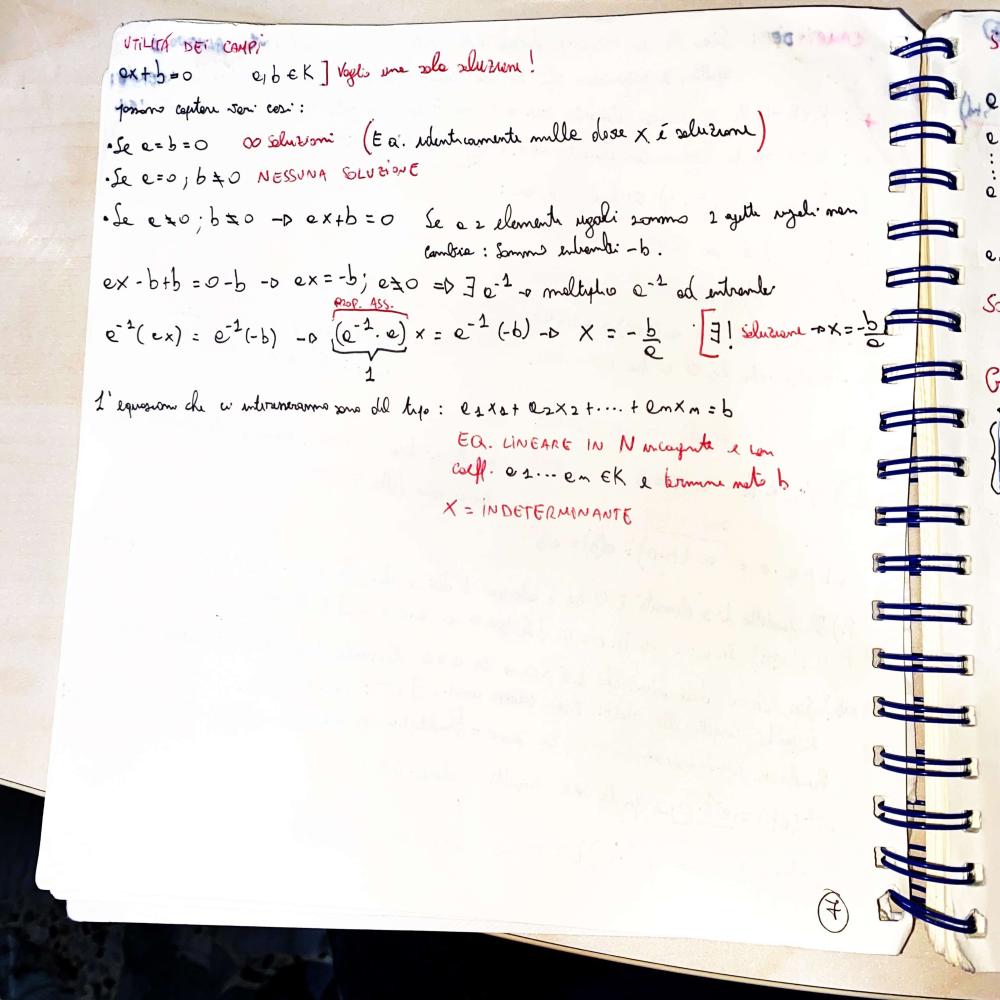 UTILITÁ DEI CAMPI
ax+b=0 a,b ∈ K ] Voglio una sola soluzione!
possono capitare vari casi:
• Se a=b=0 ∞ soluzioni (Eq. identicamente nulla dove X é soluzione)
• Se a=0; b≠0 NESSUNA SOLUZIONE
• Se a≠0; b≠0 → ax+b=0 Se a 2 elementi uguali sommo 2 oggetti uguali non
cambia: Sommo entrambi -b.
ax-b+b=0-b → ax=-b; a≠0 => ∃ a⁻¹ → moltiplico a⁻¹ ad entrambi
PROP. ASS.
a⁻¹(ax) = a⁻¹(-b) → (a⁻¹·a) x = a⁻¹(-b) → X = -b/a [∃! soluzione → X=-b/a
1
L'equazioni che ci interesseranno sono del tipo: a1x1+a2x2+....+anxn=b
EQ. LINEARE IN N incognite e con
coeff. a1...an ∈K e termine noto b.
X = INDETERMINANTE
7